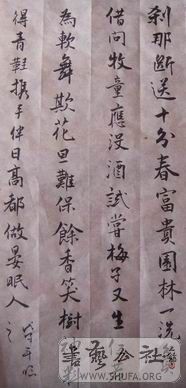 刹那斷送十分春富貴園林一洗
借問牧童應没酒試嘗梅子又生
為軟舞欺花旦難保餘香笑樹
得青鞋携手伴日高都做晏眠人
書藝公社
WWW.SHUFA.ORG